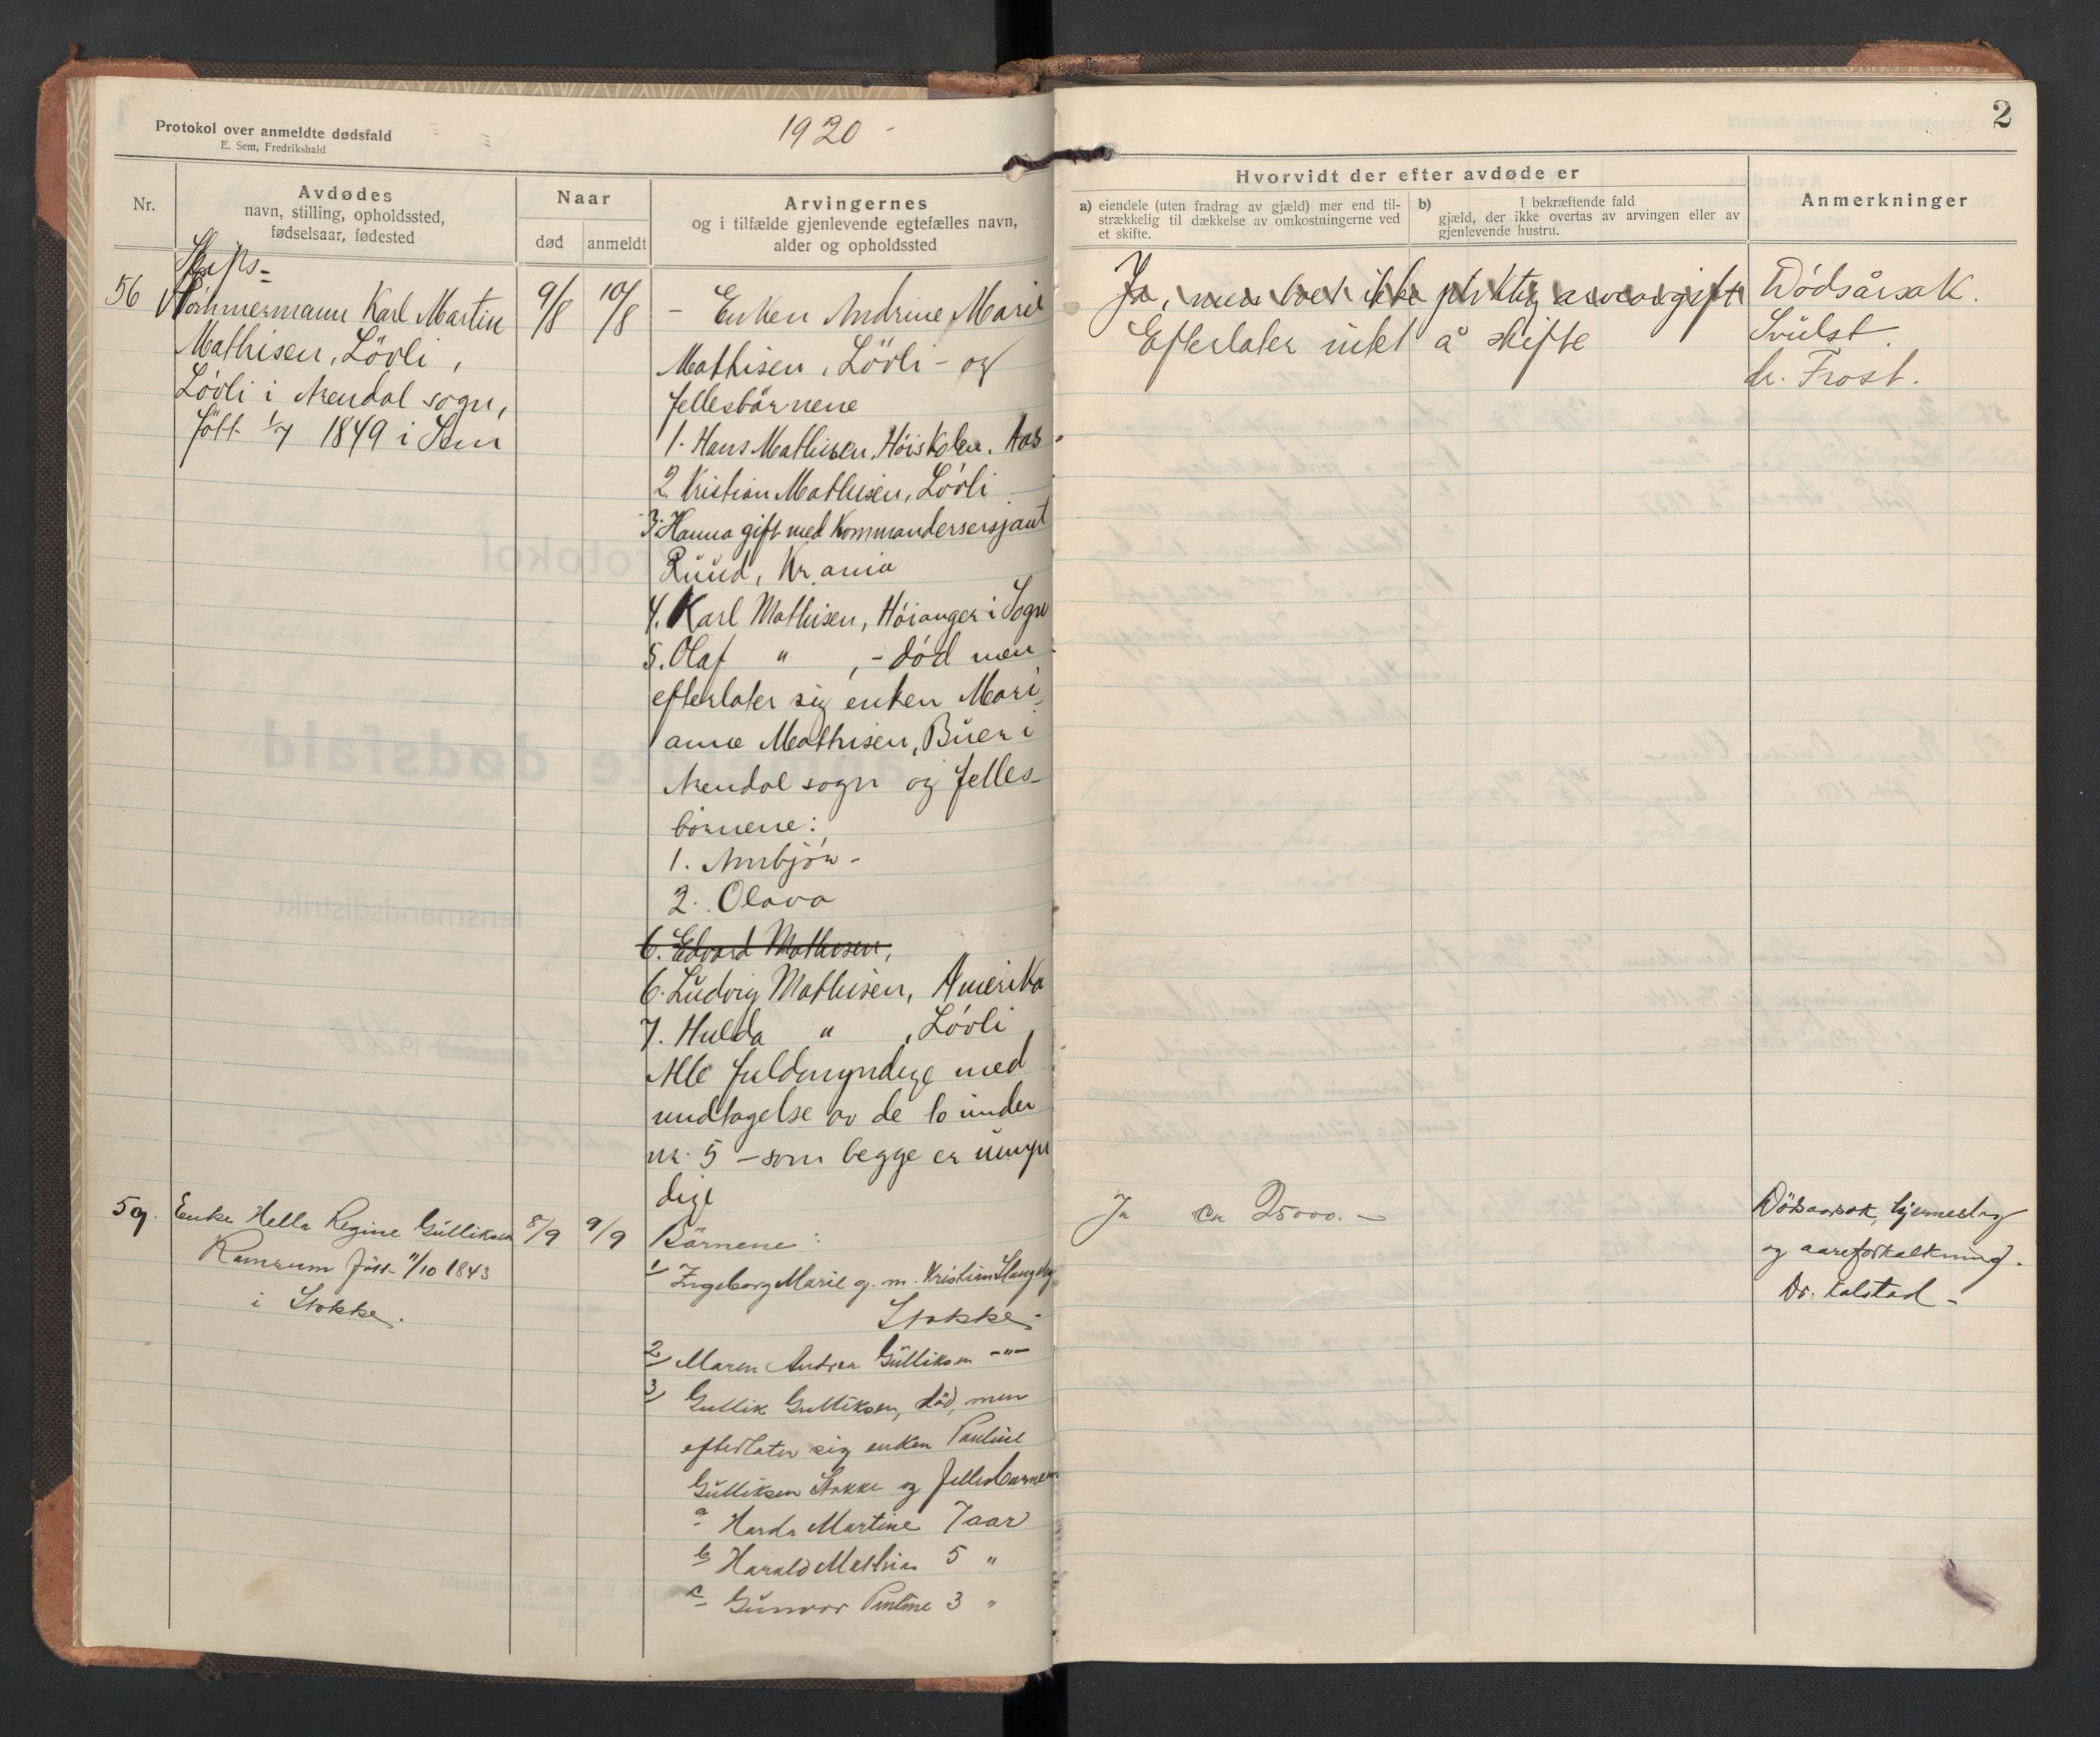 Protokol over anmeldte dødsfald
E. Sem, Fredrikshald
1920 -
Nr.
Avdødes
navn, stilling, opholdssted,
fødselsaar, fødested
Naar
død
anmeldt
Arvingernes
og i tilfælde gjenlevende egtefælles navn,
alder og opholdssted
56
Skips-
tömmermann Karl Martin
Mathisen, Lövli,
Lövli i Arendal sogn,
født 1/7 1849 i Sem
9/8
10/8
- Enken Andrine Marie
Mathisen, Lövli - og
fellesbörnene
1. Hans Mathisen, Høiskolen, Aas
2. Kristian Mathisen, Lövli
3. Hanna gift med Kommandersersjant
Ruud, Kr.ania
4. Karl Mathisen, Høianger i Sogn
5. Olaf " , - död men
efterlater sig enken Mari-
anne Mathisen, Buer i
Arendal sogn og felles-
börnene:
1. Arnbjör -
2. Olava
6. Edvard Mathisen,
6. Ludvig Mathisen, Amerika
7. Hulda " , Lövli
Alle fuldmyndige med
undtagelse av de to under
nr. 5 - som begge er umyn
dige
59.
Enke Hella Regine Gulliksen
Ramsum født 11/10 1843
i Stokke.
8/9
9/9
Börnene:
1/ Ingeborg Marie g. m. Kristian
Stokke.
2/ Maren Andrea Gulliksen -"-
3/ Gullik Gulliksen, död, men
efterlater sig enken Pauline
Gulliksen Stokke og fellesbarnene
a Harda Martine 7 aar
b Harald Mathias 5 "
c Gunvor Pauline 3 "
2
Hvorvidt der efter avdøde er
a) eiendele (uten fradrag av gjæld) mer end til-
strækkelig til dækkelse av omkostningerne ved
et skifte.
b) I bekræftende fald
gjæld, der ikke overtas av arvingen eller av
gjenlevende hustru.
Anmerkninger
Ja, men boet ikke pliktig arveavgift
Efterlater intet å skifte
Dödsårsak.
Svulst.
dr. Frost.
Ja ca 25000. -
Dödsaarsak, hjerneslag
og aareforkalkning.
Dr. Kalstad -